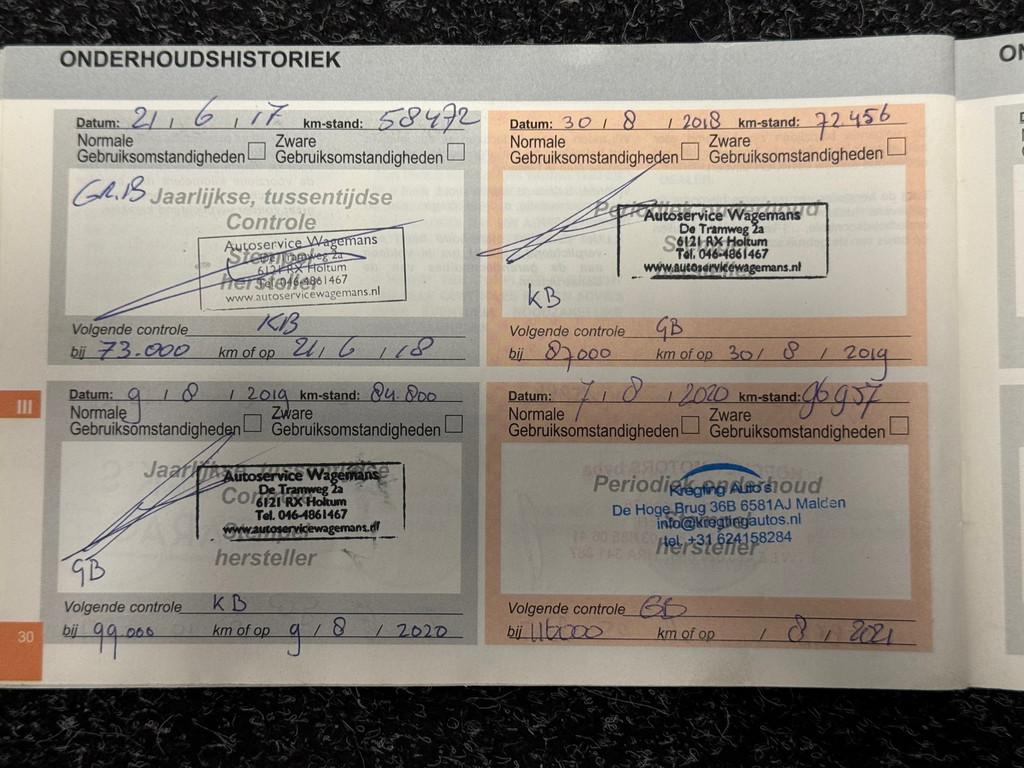 ONDERHOUDSHISTORIEK
Datum: 21 / 6 / 17 km-stand: 58472
Normale Gebruiksomstandigheden
Zware Gebruiksomstandigheden
GR.B
Jaarlijkse, tussentijdse
Controle
Stempel
hersteller
Autoservice Wagemans
De Tramweg 2a
6121 RX Holtum
Tel. 046-4861467
www.autoservicewagemans.nl
Volgende controle KB
bij 73.000 km of op 21 / 6 / 18
Datum: 30 / 8 / 2018 km-stand: 72.456
Normale Gebruiksomstandigheden
Zware Gebruiksomstandigheden
Periodiek onderhoud
Stempel
hersteller
Autoservice Wagemans
De Tramweg 2a
6121 RX Holtum
Tel. 046-4861467
www.autoservicewagemans.nl
KB
Volgende controle GB
bij 87000 km of op 30 / 8 / 2019
III
Datum: 9 / 8 / 2019 km-stand: 84.800
Normale Gebruiksomstandigheden
Zware Gebruiksomstandigheden
Jaarlijkse, tussentijdse
Controle
Stempel
hersteller
Autoservice Wagemans
De Tramweg 2a
6121 RX Holtum
Tel. 046-4861467
www.autoservicewagemans.nl
GB
Volgende controle KB
bij 99.000 km of op 9 / 8 / 2020
Datum: 7 / 8 / 2020 km-stand: 96957
Normale Gebruiksomstandigheden
Zware Gebruiksomstandigheden
Periodiek onderhoud
Stempel
hersteller
Kregting Auto's
De Hoge Brug 36B 6581AJ Malden
info@kregtingautos.nl
tel. +31 624158284
Volgende controle GB
bij 116000 km of op / 8 / 2021
30